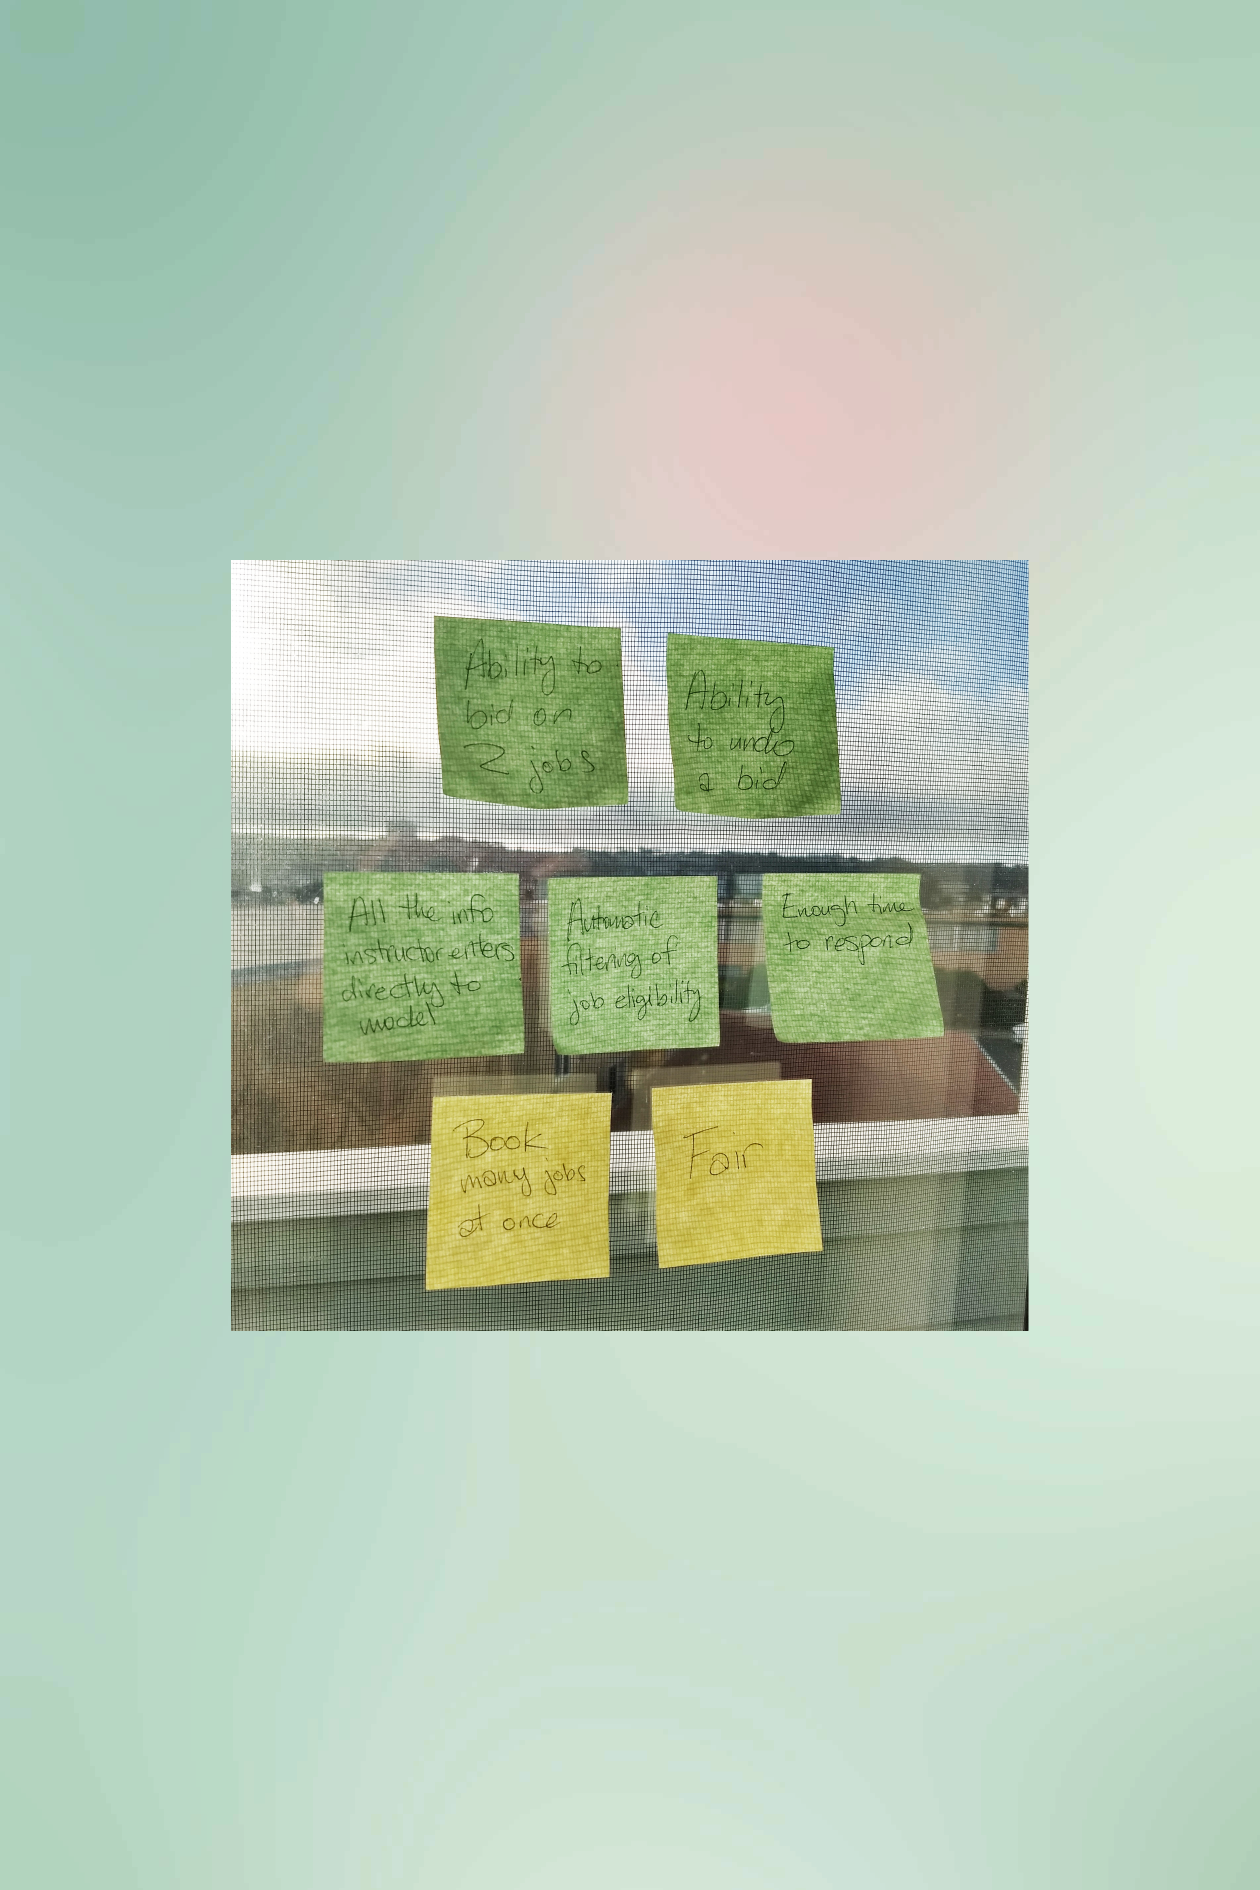 Ability to
bid on
2 jobs
Ability
to undo
a bid
All the info
instructor enters
directly to
model
Automatic
filtering of
job eligibility
Enough time
to respond
Book
many jobs
at once
Fair